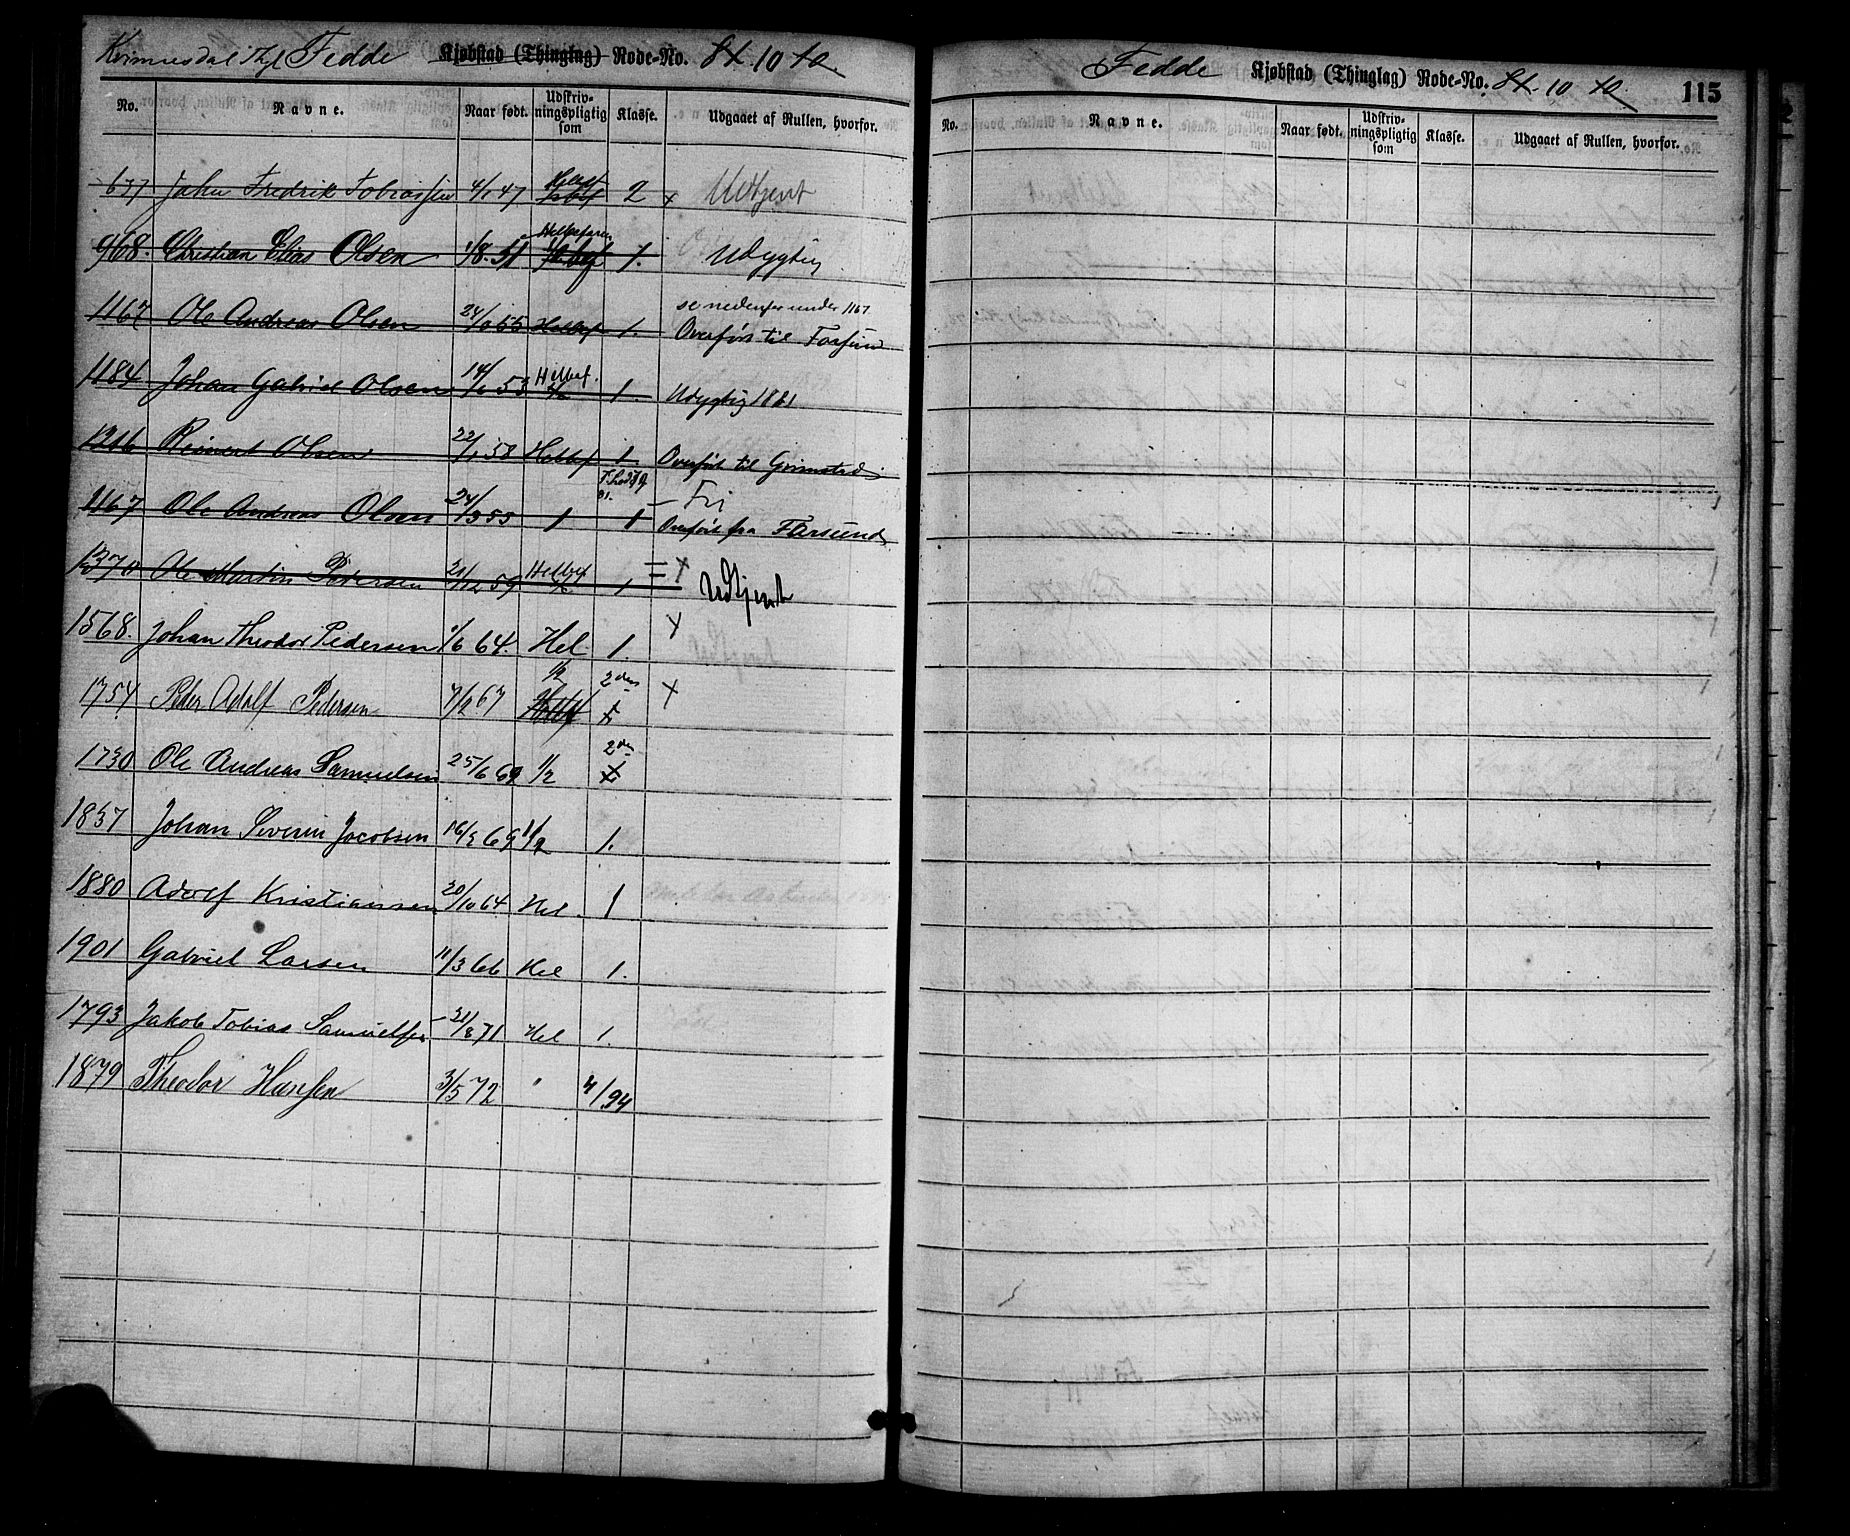 Kvinnesdal Thgl Fedde Kjøbstad (Thinglag) Rode-No. 10
No. Navne. Naar født. Udskrivningspligtig som Klasse. Udgaaet af Rullen, hvorfor.
637 John Fredrik Tobiassen 4/1 47 2 x Udtjent
968. Christian Elias Olsen 1/8. 51 Helbefaren 1. Udygtig
1167 Ole Andreas Olsen 24/ 55 1. se nedenfor under 1167
Overført til Farsund
1184 Johan Gabriel Olsen 14/ 53 Helbef. 1/2 1 Udygtig 1881
Reinert Olsen 22/1 58 Helbef 1 Overført til Grimstad
1167 Ole Andreas Olsen 24/ 55 1 1 Fri
Overført fra Farsund
1370 Ole Martin Pedersen 21/12 59 Helbef 1/2 1 = x Udtjent
1568. Johan Theodor Pedersen 1/6 64. Hel. 1. x
1754 Peder Adolf Pedersen 7/2 67 1/2 2den x
1730 Ole Andreas Samuelsen 25/6 69 1/2 2den
1837 Johan Severin Jacobsen 16/3 69 1/2 1.
1880 Adolf Kristiansen 20/10 64 Hel. 1
1901 Gabriel Larsen 11/3 66 Hel 1.
1793 Jakob Tobias Samuelsen 21/8 71 Hel 1.
1879 Theodor Hansen 3/5 72 " 4/94
Fedde Kjøbstad (Thinglag) Rode-No. 10 115
No. Navne. Naar født. Udskrivningspligtig som Klasse. Udgaaet af Rullen, hvorfor.